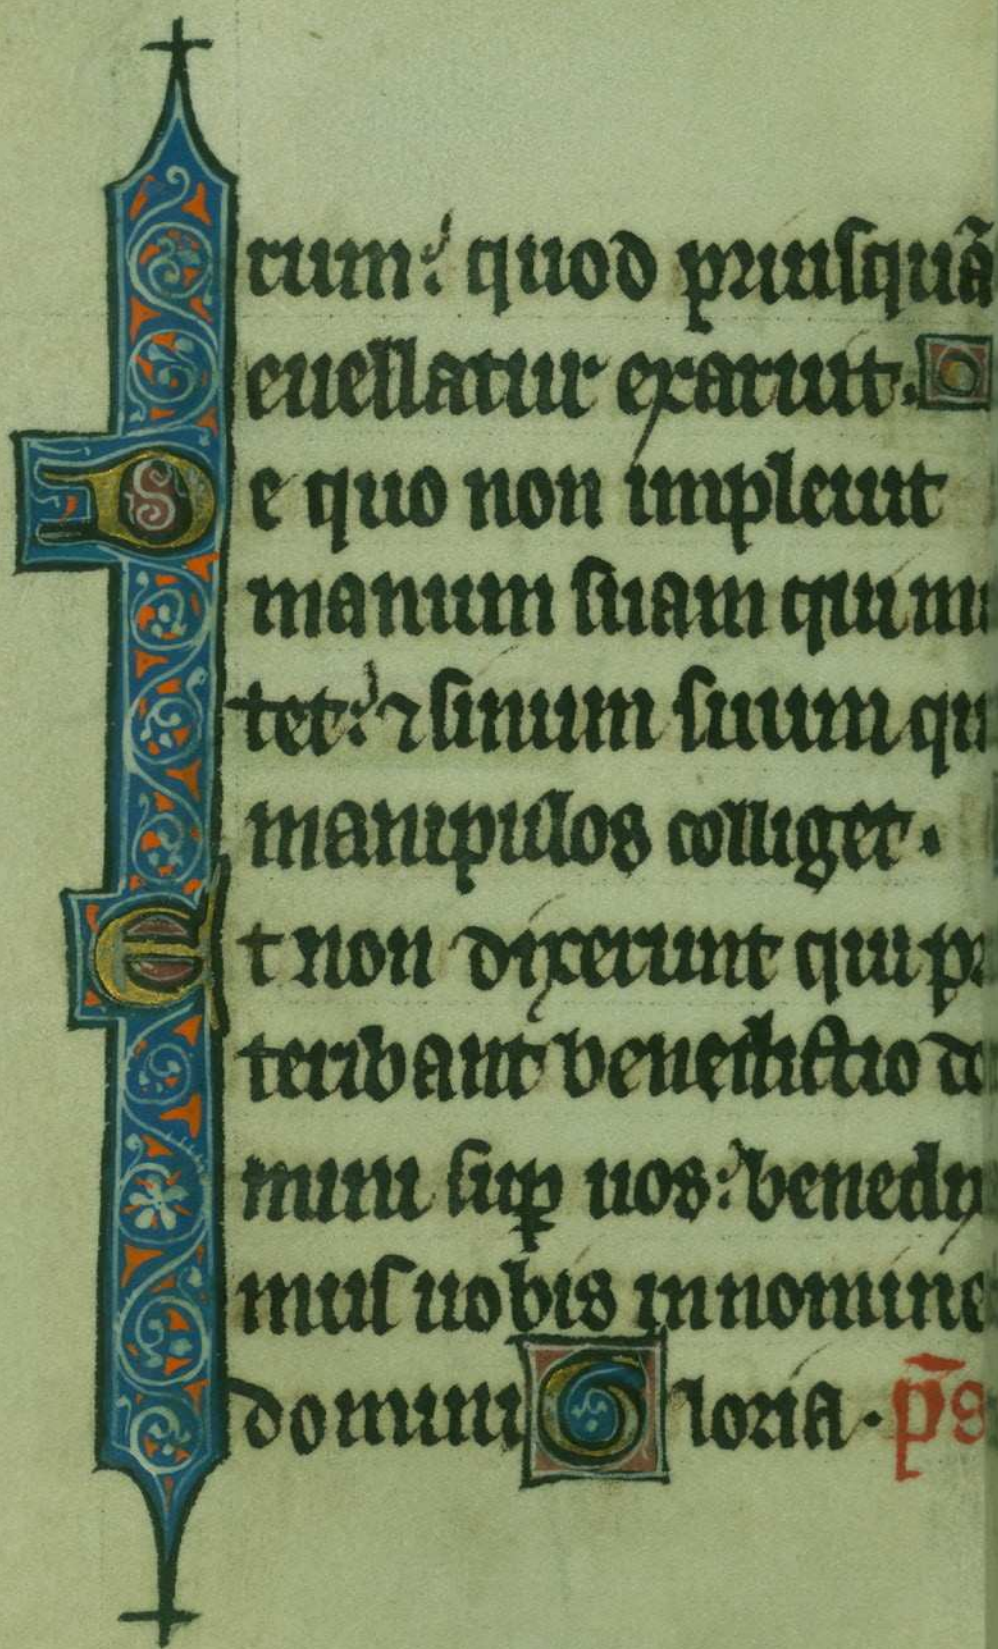 rum: quod priusquã
euellatur exaruit.
De quo non impleuit
manum suam qui me
tet: ⁊ sinum suum qui
manipulos colliget.
Et non dixerunt qui pre
teribant benedictio do
mini suꝑ uos: benedixi
mus uobis in nomine
domini Gloria. p̄s